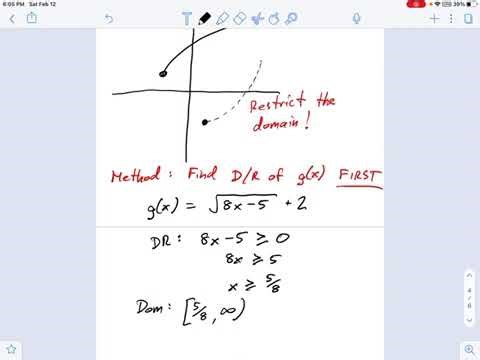 6:05 PM Sat Feb 12
39%
Restrict the
domain!
Method: Find D/R of g(x) FIRST
g(x) = √(8x-5) + 2
DR: 8x-5 ≥ 0
8x ≥ 5
x ≥ 5/8
Dom: [5/8, ∞)
4
/
6